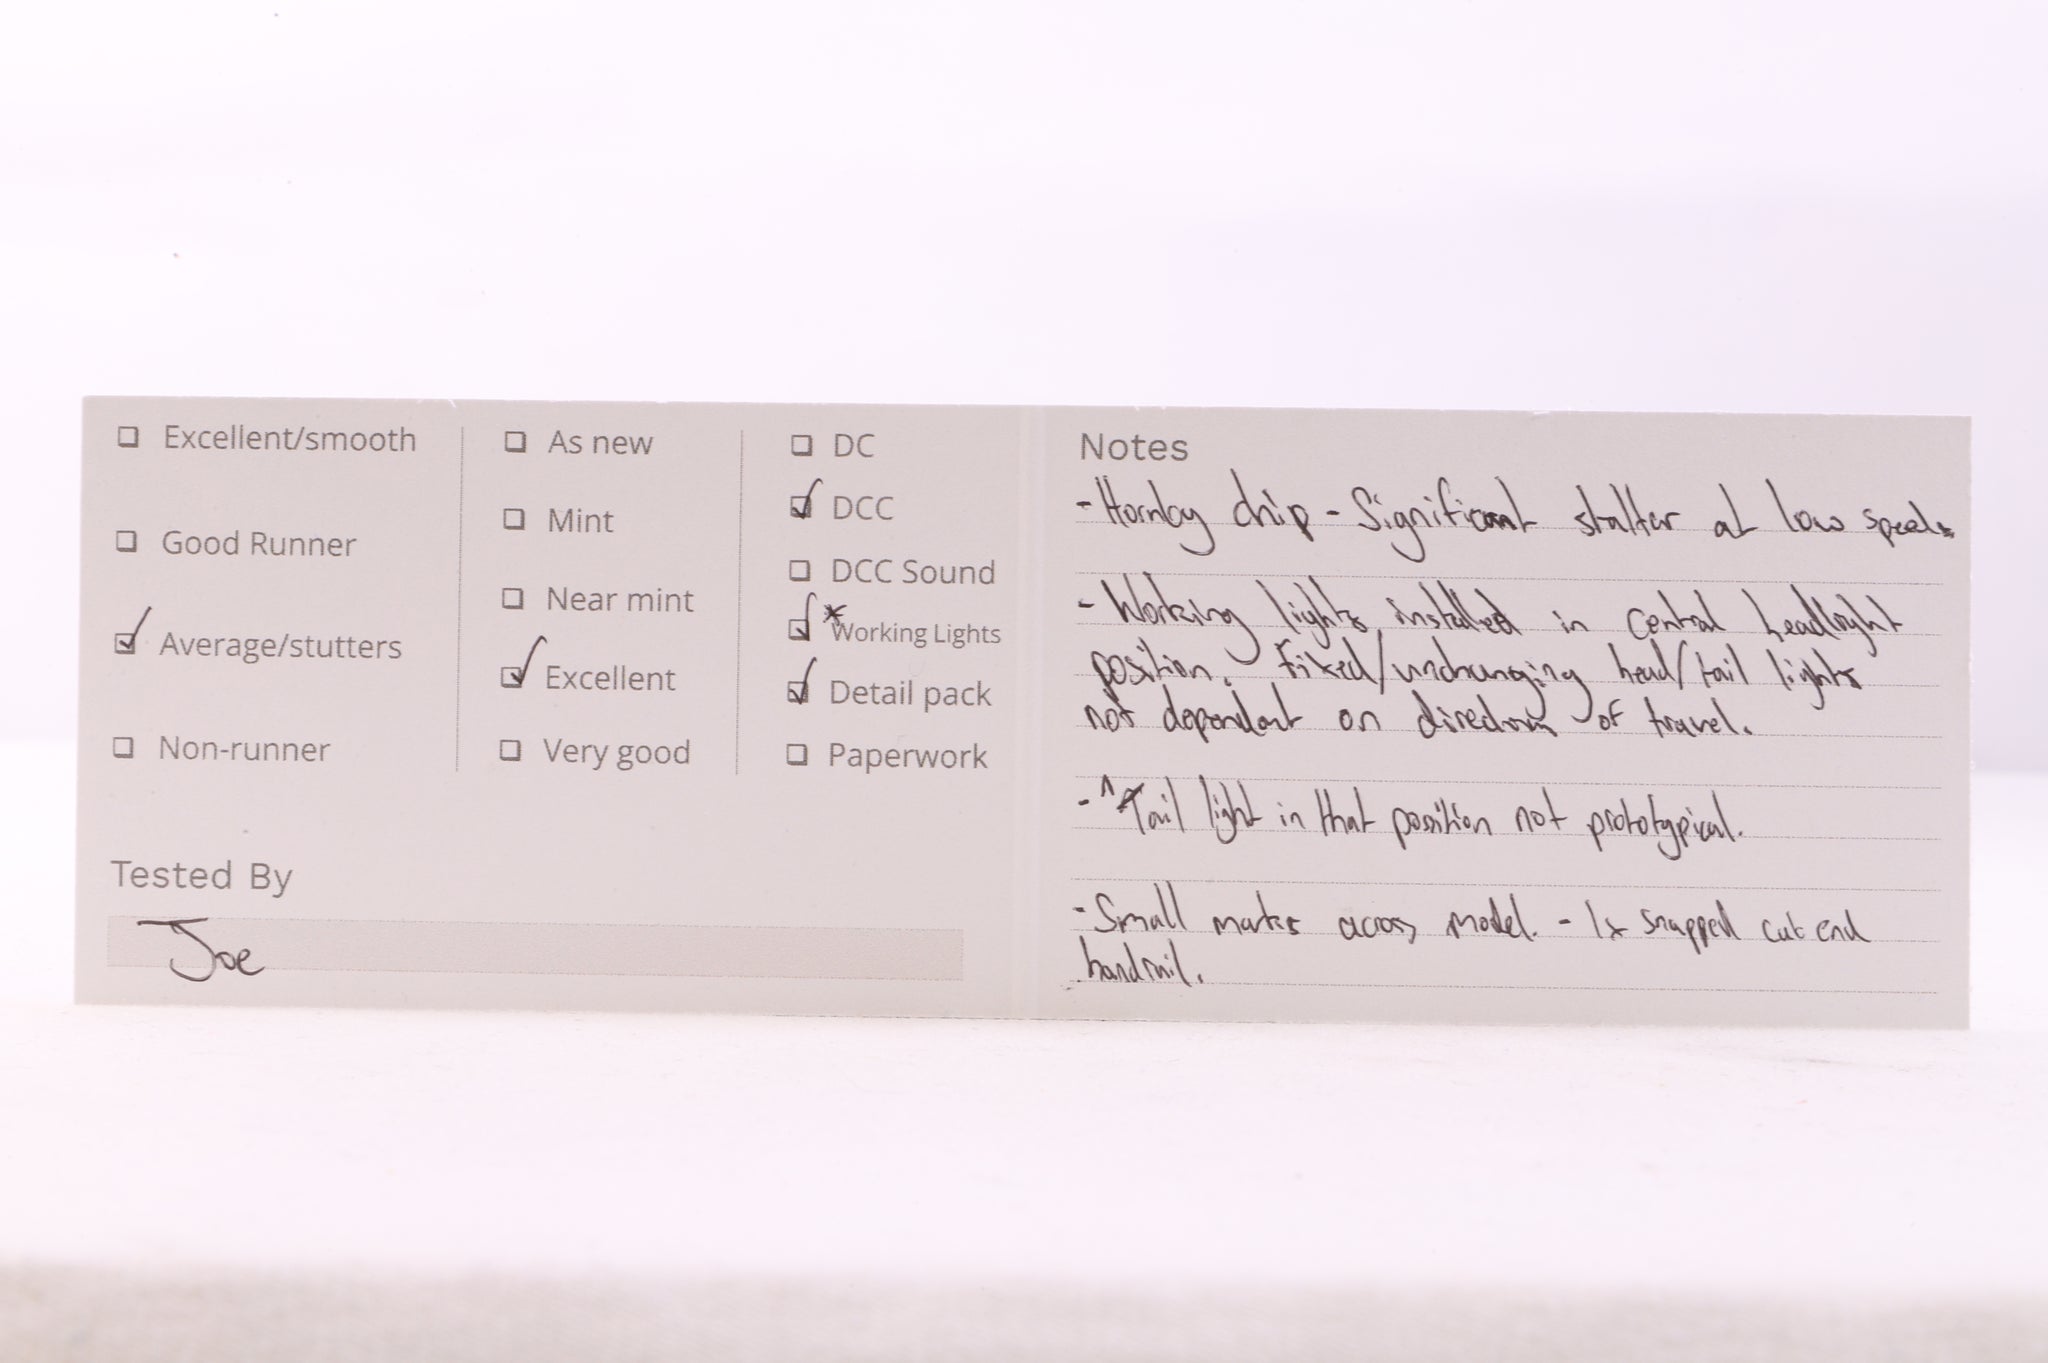 Excellent/smooth
Good Runner
Average/stutters
Non-runner
As new
Mint
Near mint
Excellent
Very good
DC
DCC
DCC Sound
*Working Lights
Detail pack
Paperwork
Tested By
Joe
Notes
- Hornby chip - Significant stutter at low speeds
- Working lights installed in central headlight
position. Fixed/unchanging head/tail lights
not dependant on direction of travel.
- ^ Tail light in that position not prototypical.
- Small marks across model. - 1x snapped cab end
handrail.